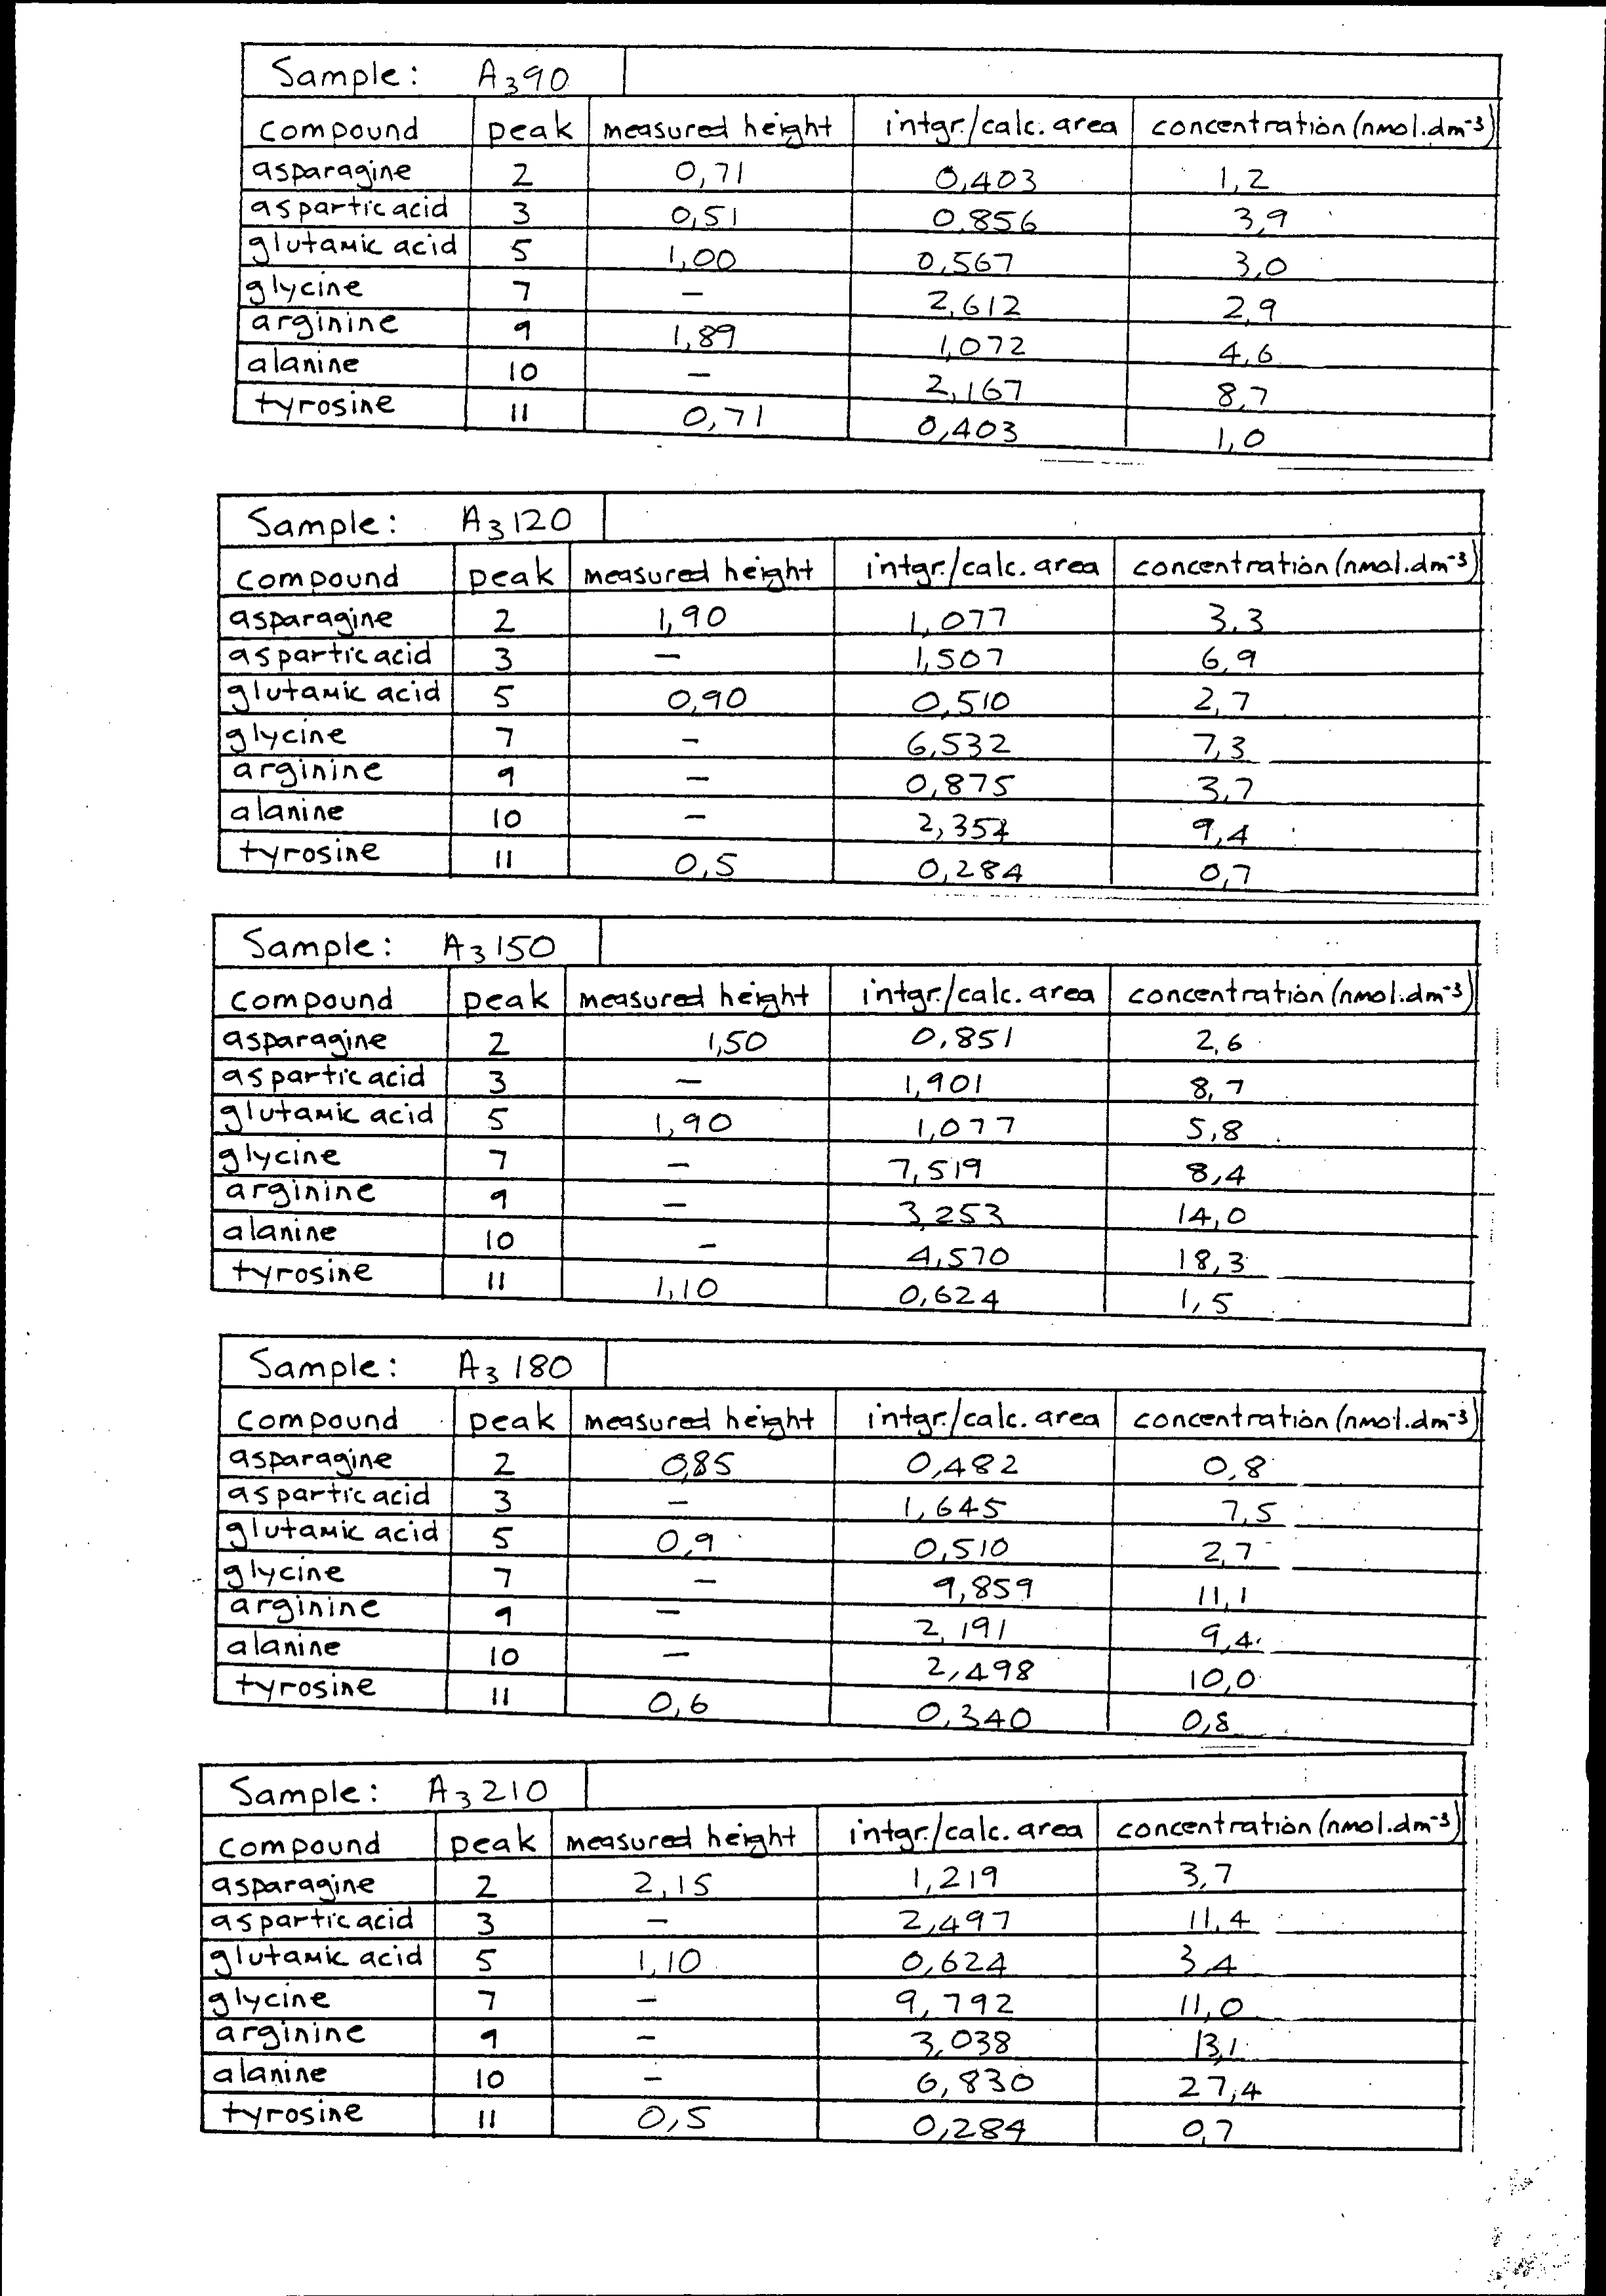 Sample: A₃90
compound peak measured height intgr./calc. area concentration (nmol.dm⁻³)
asparagine 2 0,71 0,403 1,2
aspartic acid 3 0,51 0,856 3,9
glutamic acid 5 1,00 0,567 3,0
glycine 7 – 2,612 2,9
arginine 9 1,89 1,072 4,6
alanine 10 – 2,167 8,7
tyrosine 11 0,71 0,403 1,0
Sample: A₃120
compound peak measured height intgr./calc. area concentration (nmol.dm⁻³)
asparagine 2 1,90 1,077 3,3
aspartic acid 3 – 1,507 6,9
glutamic acid 5 0,90 0,510 2,7
glycine 7 – 6,532 7,3
arginine 9 – 0,875 3,7
alanine 10 – 2,354 9,4
tyrosine 11 0,5 0,284 0,7
Sample: A₃150
compound peak measured height intgr./calc. area concentration (nmol.dm⁻³)
asparagine 2 1,50 0,851 2,6
aspartic acid 3 – 1,901 8,7
glutamic acid 5 1,90 1,077 5,8
glycine 7 – 7,519 8,4
arginine 9 – 3,253 14,0
alanine 10 – 4,570 18,3
tyrosine 11 1,10 0,624 1,5
Sample: A₃180
compound peak measured height intgr./calc. area concentration (nmol.dm⁻³)
asparagine 2 0,85 0,482 0,8
aspartic acid 3 – 1,645 7,5
glutamic acid 5 0,9 0,510 2,7
glycine 7 – 9,859 11,1
arginine 9 – 2,191 9,4
alanine 10 – 2,498 10,0
tyrosine 11 0,6 0,340 0,8
Sample: A₃210
compound peak measured height intgr./calc. area concentration (nmol.dm⁻³)
asparagine 2 2,15 1,219 3,7
aspartic acid 3 – 2,497 11,4
glutamic acid 5 1,10 0,624 3,4
glycine 7 – 9,792 11,0
arginine 9 – 3,038 13,1
alanine 10 – 6,830 27,4
tyrosine 11 0,5 0,284 0,7